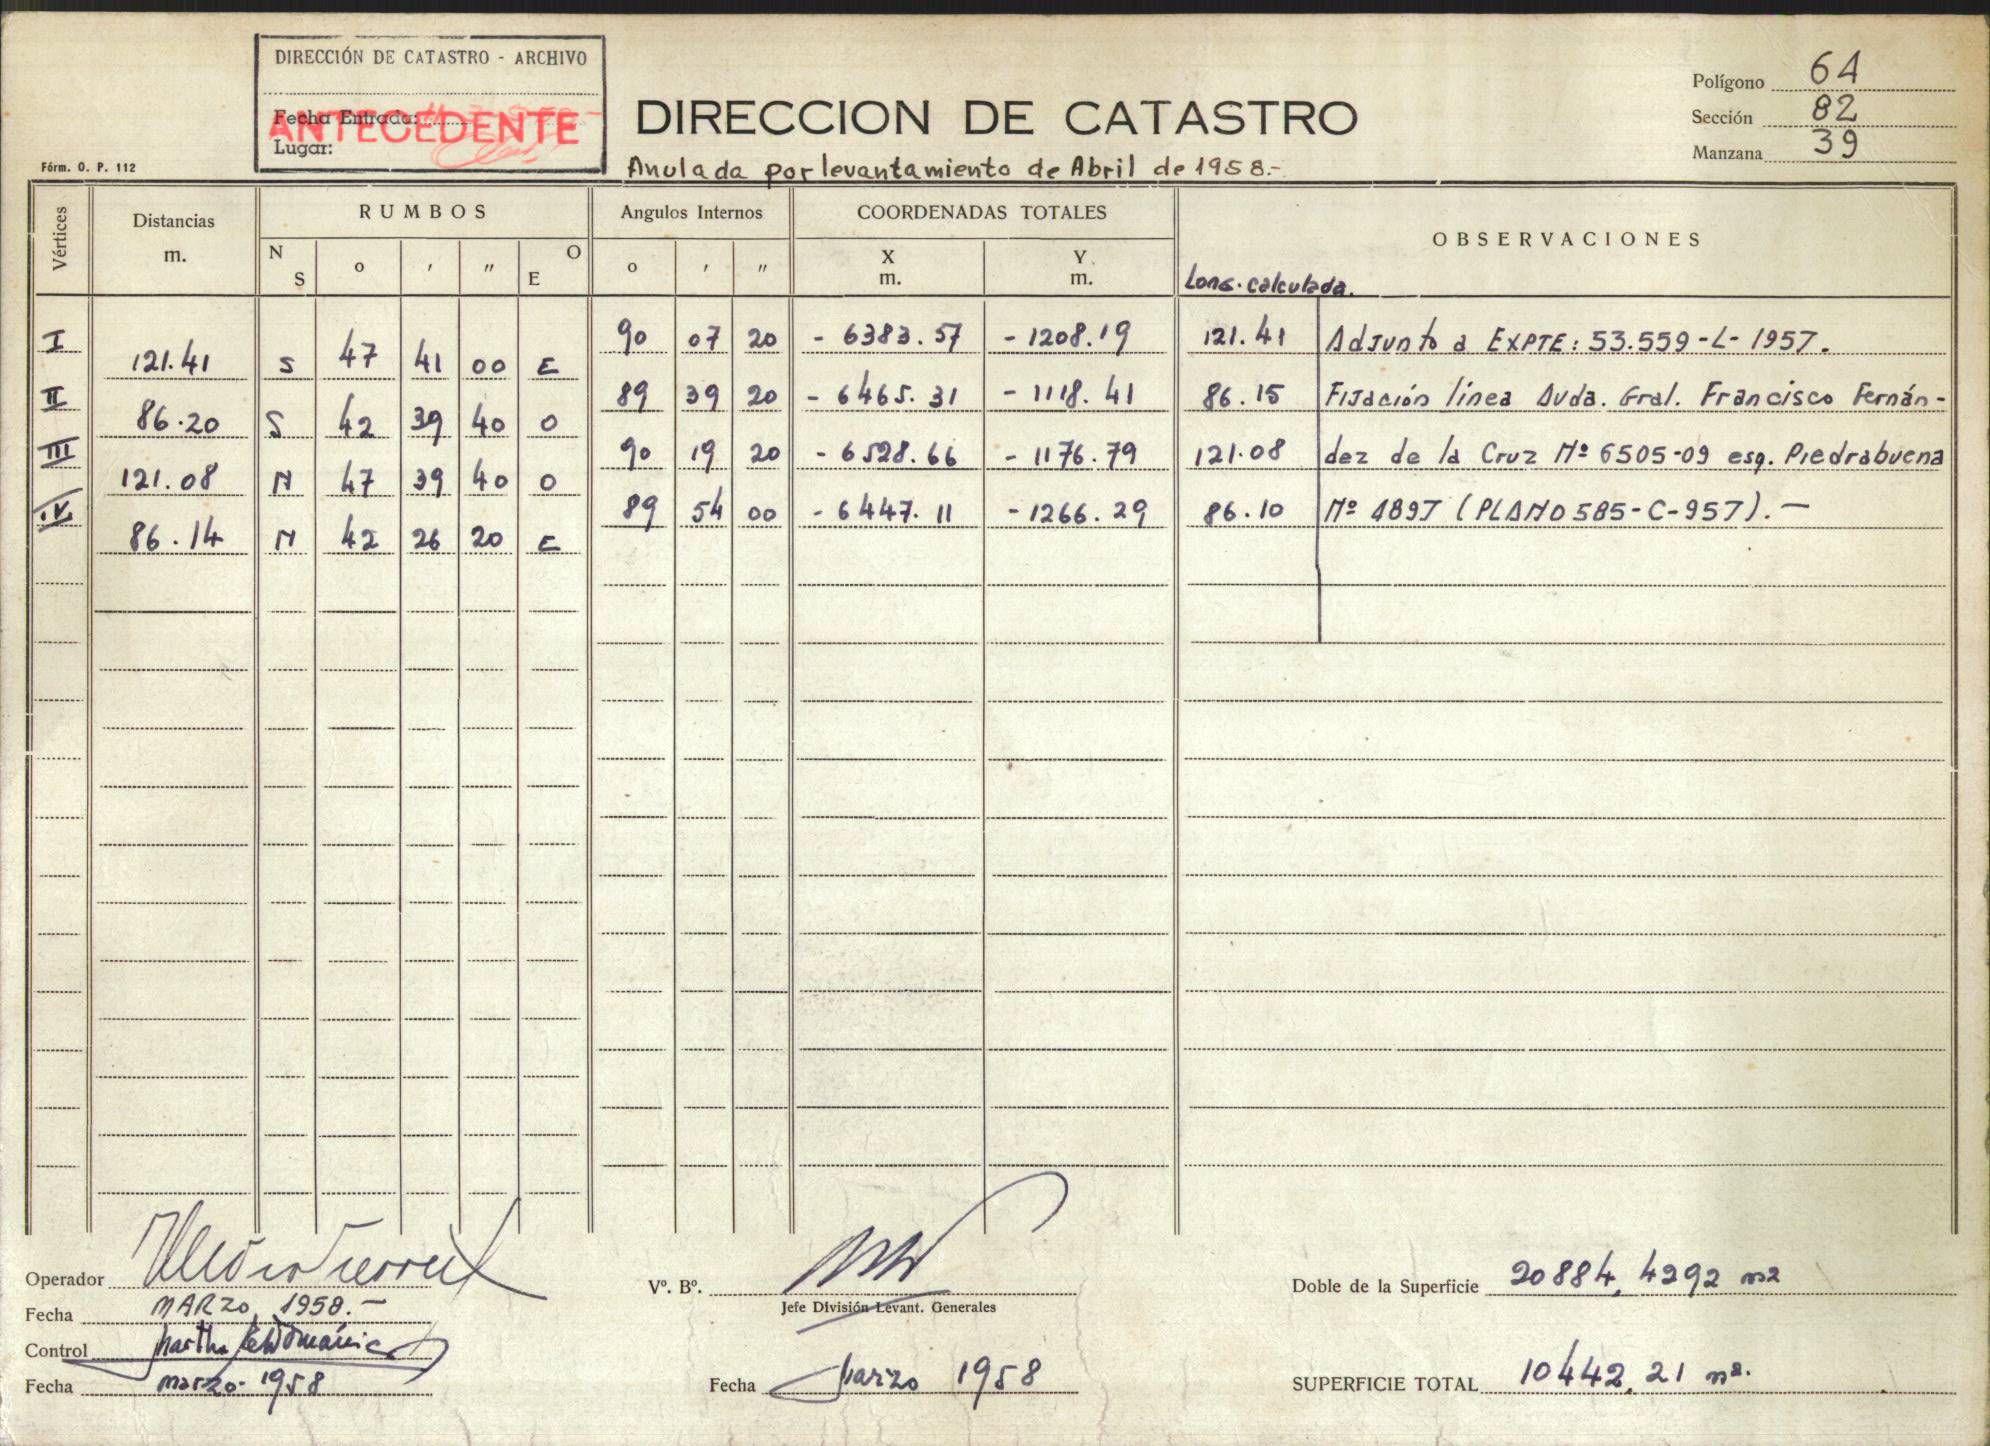 DIRECCIÓN DE CATASTRO - ARCHIVO
Fecha Entrada:
ANTECEDENTE
Lugar:
Fórm. O. P. 112
DIRECCION DE CATASTRO
Anulada por levantamiento de Abril de 1958.-
Polígono 64
Sección 82
Manzana 39
Vértices Distancias m. RUMBOS Angulos Internos COORDENADAS TOTALES OBSERVACIONES
N S o ' " O E o ' " X m. Y m. Long. calculada.
I 90 07 20 - 6383.57 - 1208.19 121.41 Adjunto a EXPTE: 53.559-L-1957.
121.41 S 47 41 00 E
II 89 39 20 - 6465.31 - 1118.41 86.15 Fijación línea Avda. Gral. Francisco Fernán-
86.20 S 42 39 40 O
III 90 19 20 - 6528.66 - 1176.79 121.08 dez de la Cruz Nº 6505-09 esq. Piedrabuena
121.08 N 47 39 40 O
IV 89 54 00 - 6447.11 - 1266.29 86.10 Nº 4897 (PLANO 585-C-957).-
86.14 N 42 26 20 E
Operador
Fecha MARZO 1958.-
Control
Fecha marzo-1958
Vº. Bº.
Jefe División Levant. Generales
Fecha marzo 1958
Doble de la Superficie 20884,4292 m2
SUPERFICIE TOTAL 10442,21 m2.